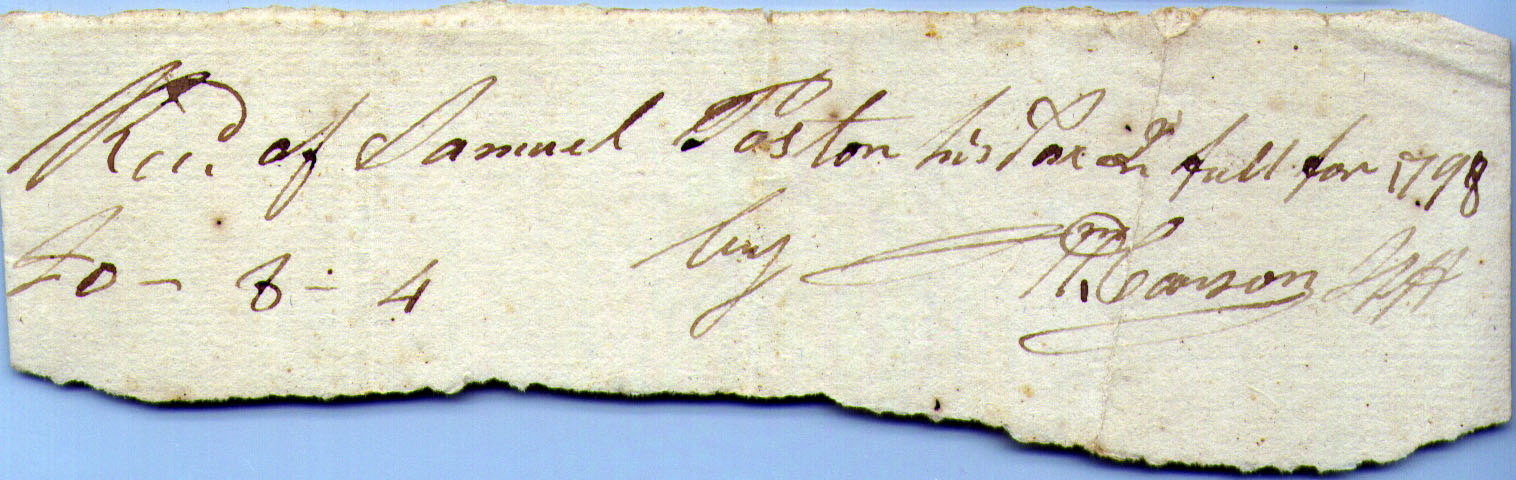 Recd of Samuel Paston his Tax in full for 1798
£0 – 8 – 4 by Wm Carson Shff